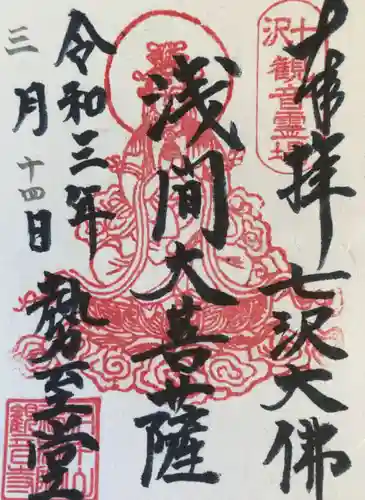 奉拝
七沢大佛
浅間大菩薩
勢至堂
令和三年
三月十四日
七沢
観音霊場
観音寺